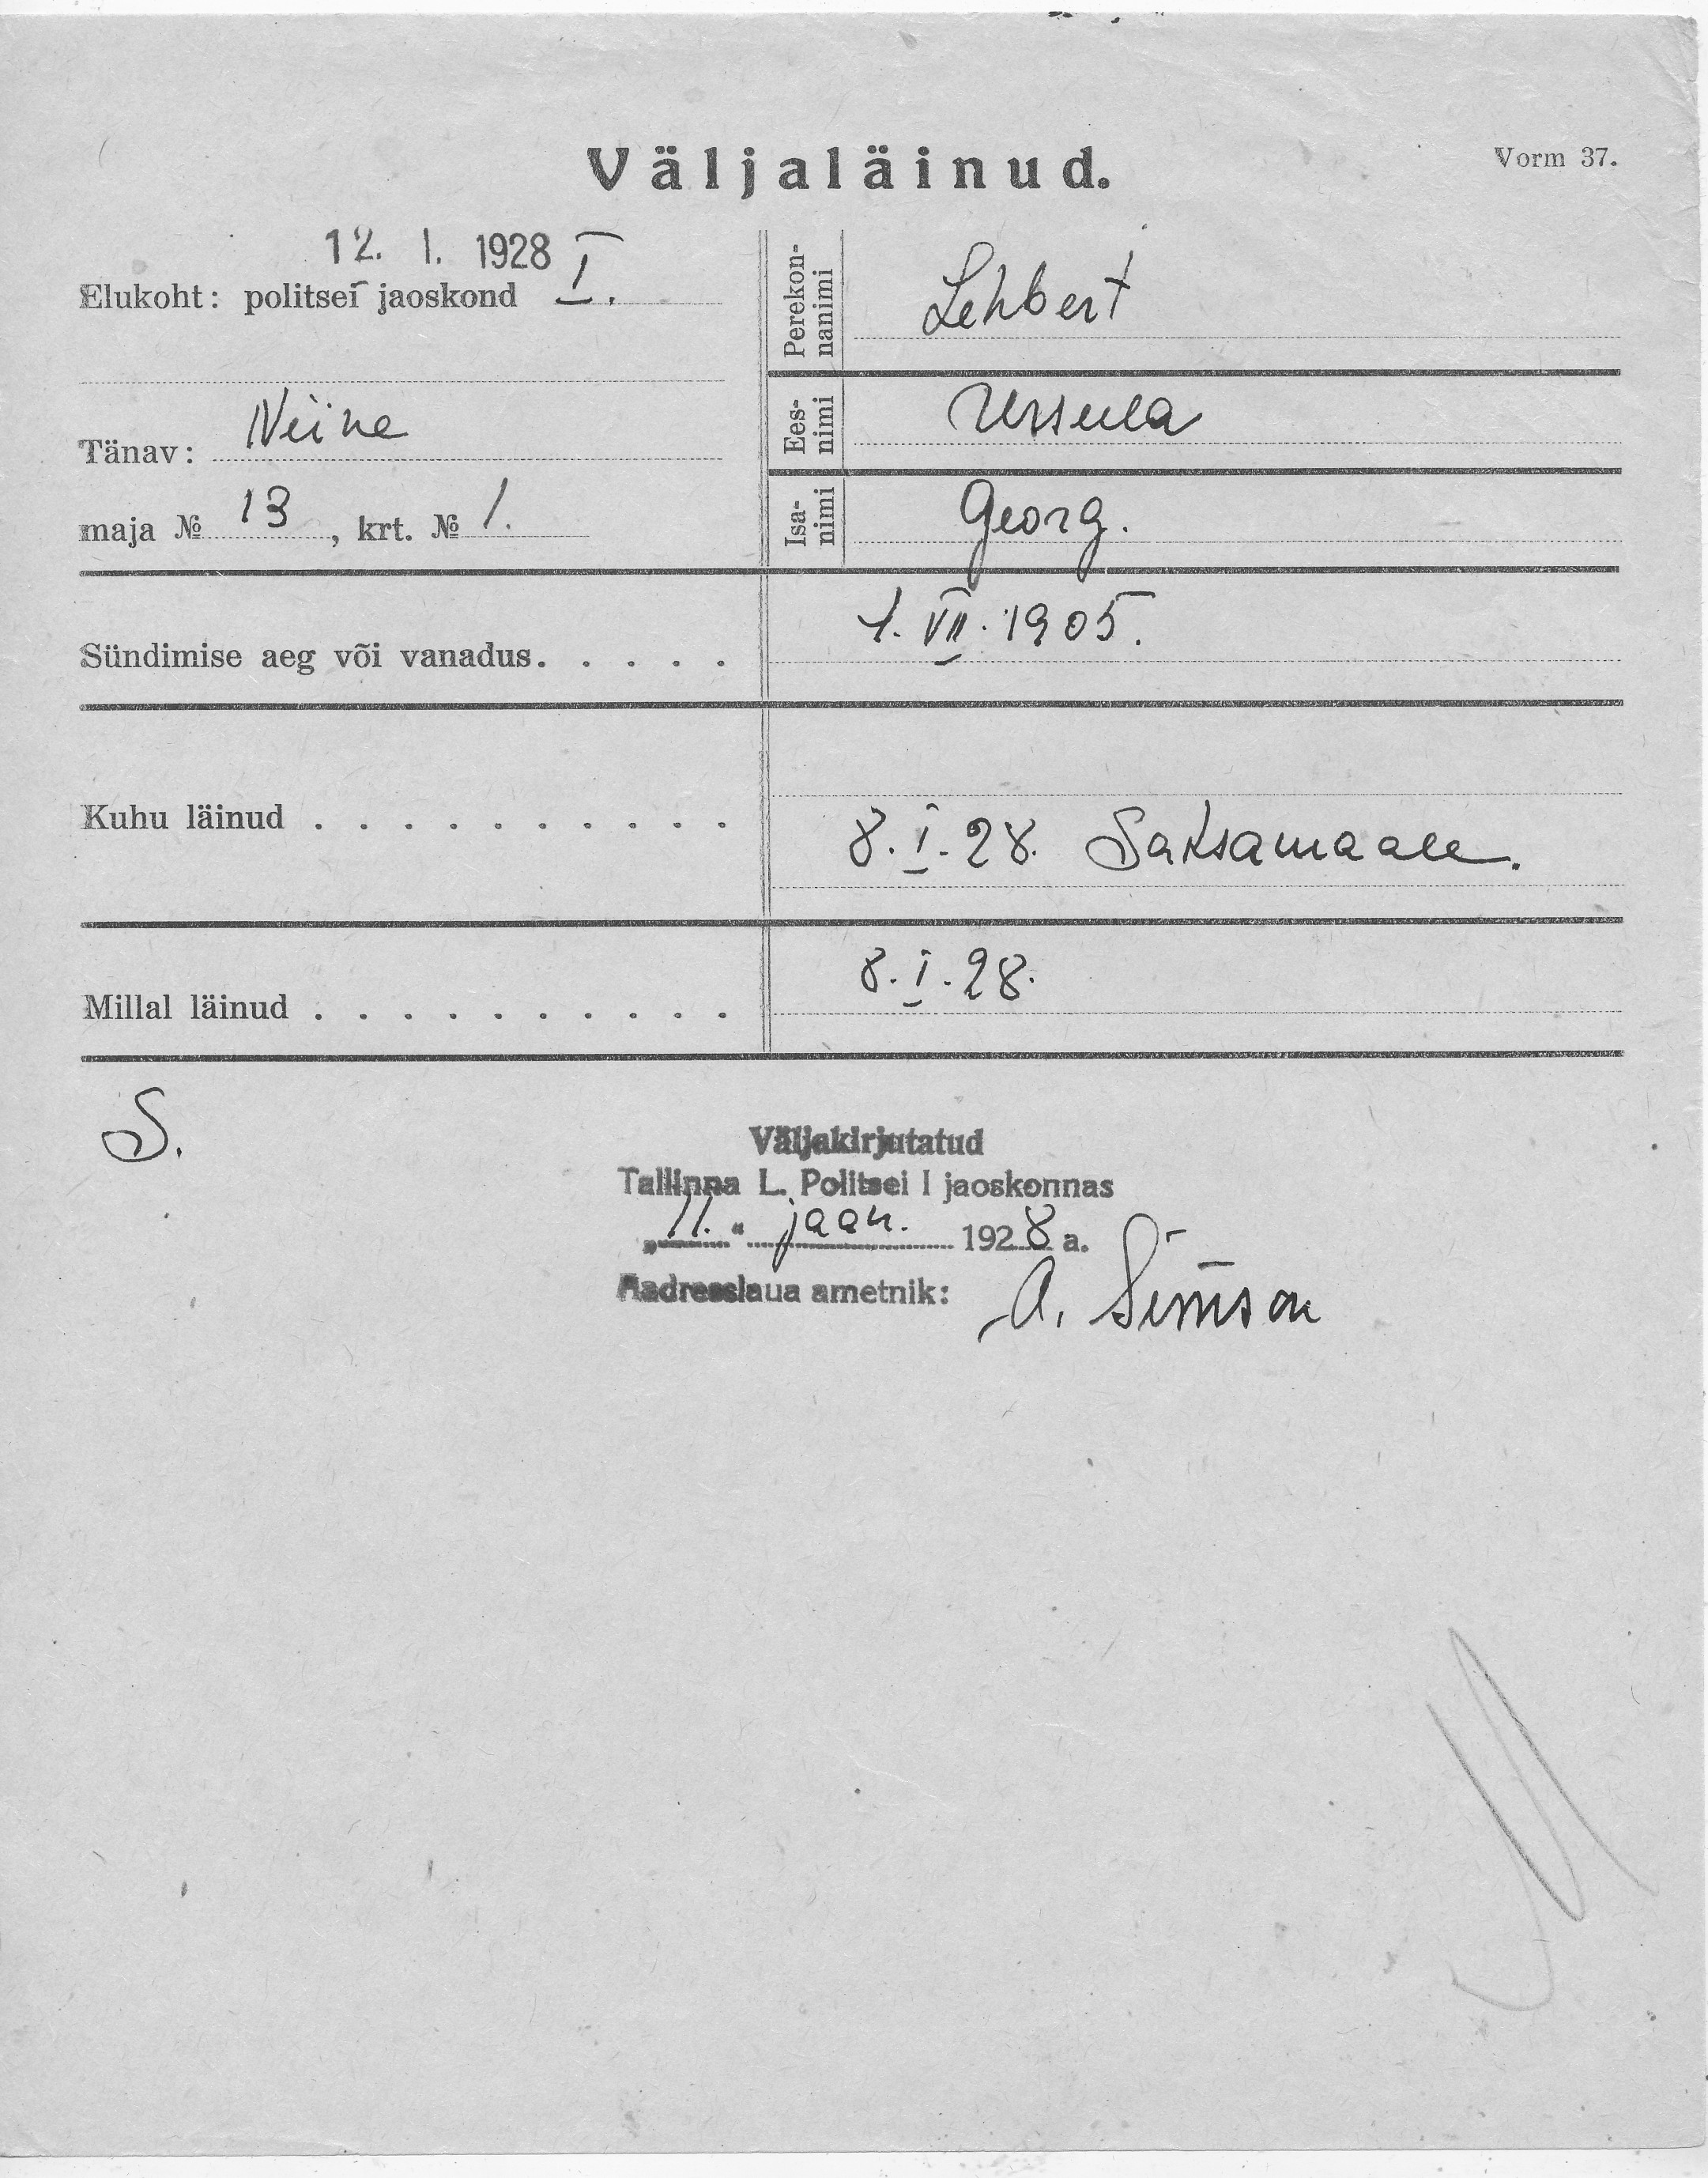 Väljaläinud.
Vorm 37.
12. I. 1928
Elukoht: politsei jaoskond I.
Tänav: Niine
maja № 13, krt. № 1.
Perekon-
nanimi
Lehbert
Ees-
nimi
Ursula
Isa-
nimi
Georg.
Sündimise aeg või vanadus. . . . . 1. VII. 1905.
Kuhu läinud . . . . . . . . . . 8. I. 28. Saksamaale.
Millal läinud . . . . . . . . . . 8. I. 28.
S.
Väljakirjutatud
Tallinna L. Politsei I jaoskonnas
„11.“ jaan. 1928 a.
Aadresslaua ametnik: A. Simson